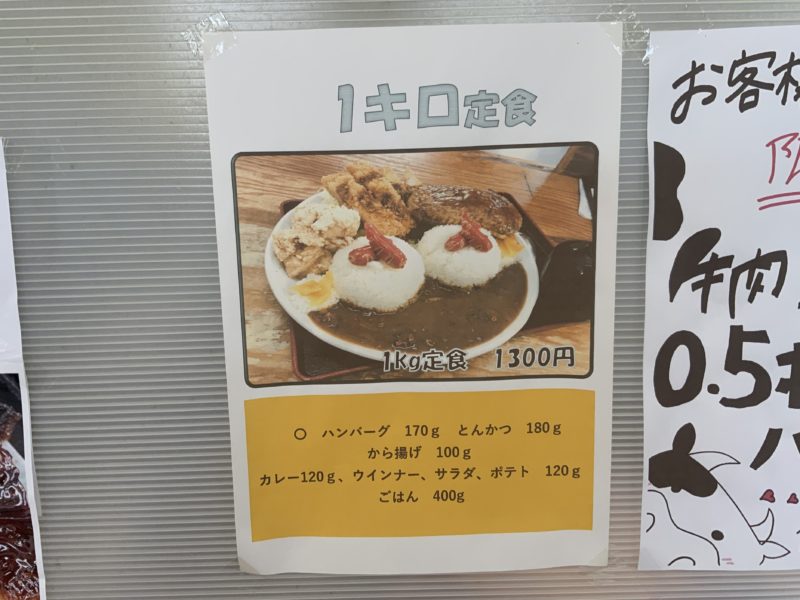 1キロ定食
1kg定食 1300円
〇 ハンバーグ 170g とんかつ 180g
から揚げ 100g
カレー120g、ウインナー、サラダ、ポテト 120g
ごはん 400g
お客様
限
牛肉
0.5キ
ハ